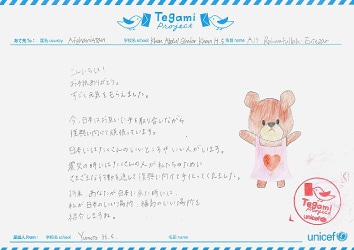 Tegami
Project
あて先To: 国名 country Afghanistan 学校名 school Khan Abdul Ghafar Khan H.S 名前 name
こんにちは!
お手紙ありがとう。
すごく元気をもらえました。
今、日本はお互いに手を取り合いながら
復興に向けて頑張っています。
日本にはたくさんのいいところやいい人がいます。
震災の時にはたくさんの人が私たちのために
さまざまな行動を通して復興に向けて手伝ってくれました。
将来、あなたが日本に来た時には、
私が日本のいい場所、
紹介しますね。
Tegami
Project
unicef
差出人From: 学校名 school Yumoto H.S. 名前 name
unicef